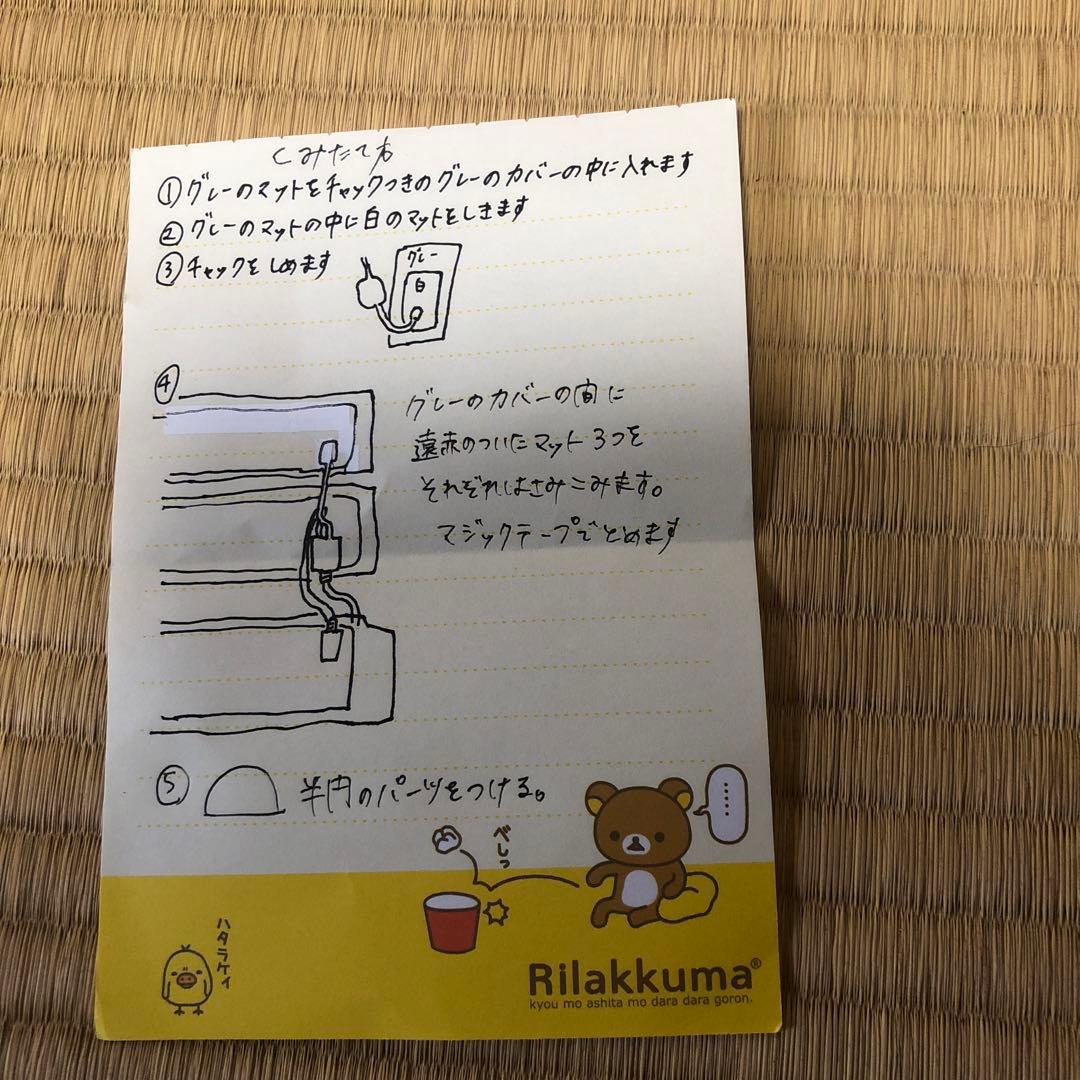 くみたて方
①グレーのマットをチャックつきのグレーのカバーの中に入れます
②グレーのマットの中に白のマットをしきます
③チャックをしめます
グレー
白
④
グレーのカバーの間に
遠赤のついたマット3つを
それぞれはさみこみます。
マジックテープでとめます
⑤ 半円のパーツをつける。
……
べしっ
ハタラケイ
Rilakkuma®
kyou mo ashita mo dara dara goron.